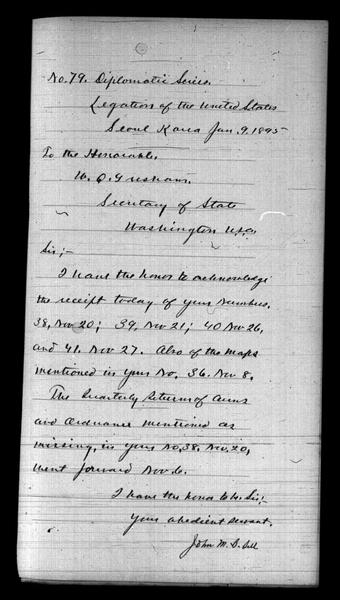 No. 79. Diplomatic Series.
Legation of the United States
Seoul Korea Jan. 9. 1895
To the Honorable.
W. Q. Gresham.
Secretary of State
Washington U.S.A.
Sir;-
I have the honor to acknowledge
the receipt today of your numbers.
38, Nov 20; 39, Nov 21; 40 Nov 26,
and 41. Nov 27. Also of the maps
mentioned in your No. 36. Nov 8.
The Quarterly Return of Arms
and Ordnance mentioned as
missing, in your No, 38, Nov. 20,
went forward Nov 6.
I have the honor to be Sir;-
Your obedient servant.
John M. B. Sill